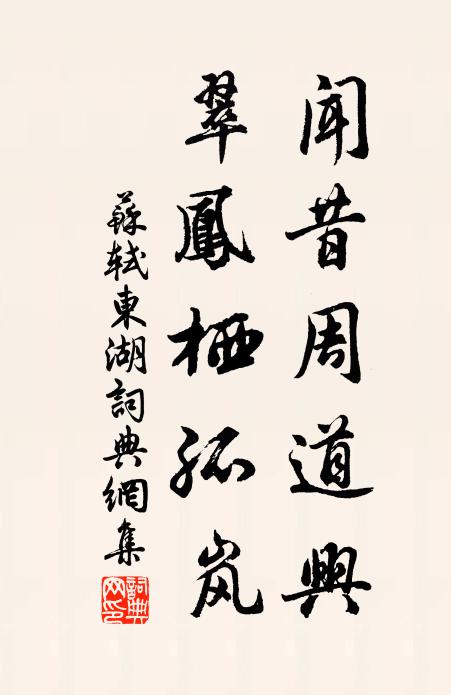 聞昔周道興
翠鳳栖孤岚
蘇軾東湖詞典網集
詞典网印